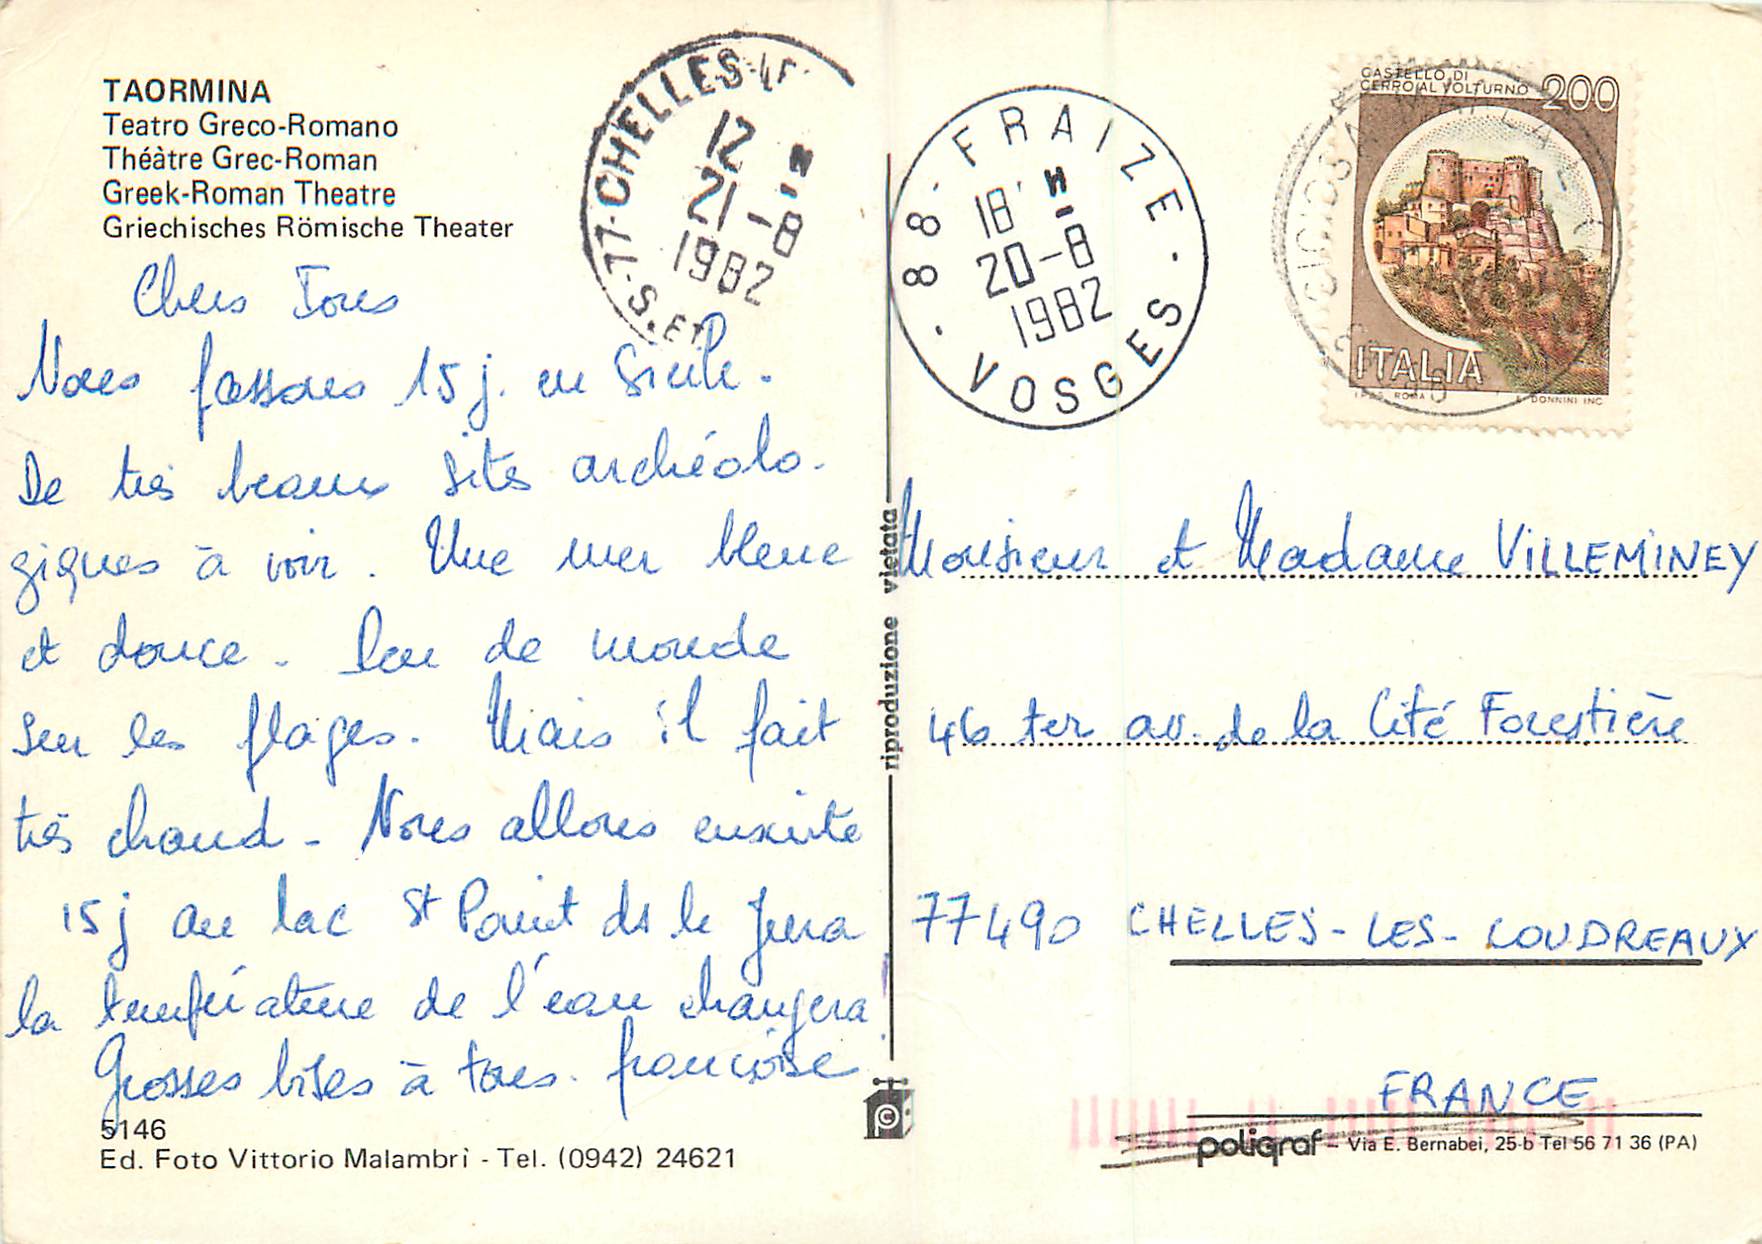 TAORMINA
Teatro Greco-Romano
Théâtre Grec-Roman
Greek-Roman Theatre
Griechisches Römische Theater
Chers Tous
Nous passons 15 j. en Sicile.
De très beaux sites archéolo-
giques à voir. Une mer bleue
et douce - Peu de monde
sur les plages. Mais il fait
très chaud - Nous allons ensuite
15 j au lac St Point ds le Jura
la température de l'eau changera
Grosses bises à tous. françoise
5146
Ed. Foto Vittorio Malambrì - Tel. (0942) 24621
77-CHELLES
12 H
21-8
1982
S. ET
88-FRAIZE
18 H
20-8
1982
VOSGES
CASTELLO DI
CERRO AL VOLTURNO
200
ITALIA
I.P.Z.S. ROMA
E. DONNINI INC.
riproduzione vietata
Monsieur et Madame VILLEMINEY
46 ter av. de la Cité Forestière
77490 CHELLES-LES-COUDREAUX
FRANCE
poligraf - Via E. Bernabei, 25-b Tel 56 71 36 (PA)
©